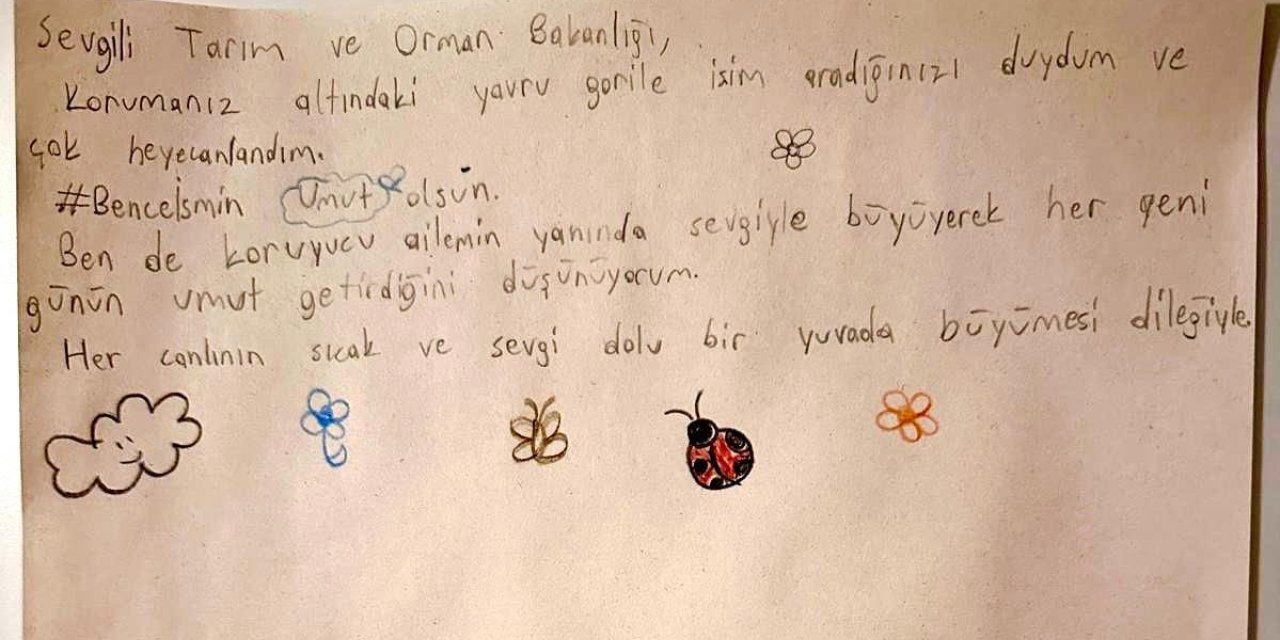 Sevgili Tarım ve Orman Bakanlığı,
Korumanız altındaki yavru gorile isim aradığınızı duydum ve
çok heyecanlandım.
#Benceİsmin Umut olsun.
Ben de koruyucu ailemin yanında sevgiyle büyüyerek her yeni
günün umut getirdiğini düşünüyorum.
Her canlının sıcak ve sevgi dolu bir yuvada büyümesi dileğiyle.